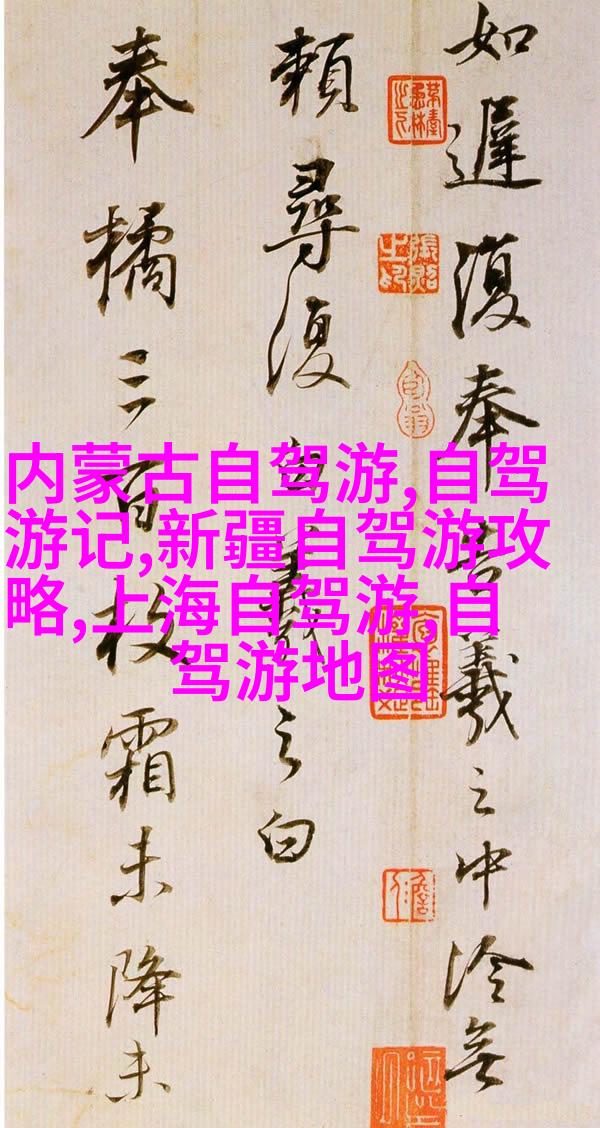 如遲復奉告羲之中冷無
賴尋復白羲之白
奉橘三百枚霜未降未
内蒙古自驾游,自驾
游记,新疆自驾游攻
略,上海自驾游,自
驾游地图